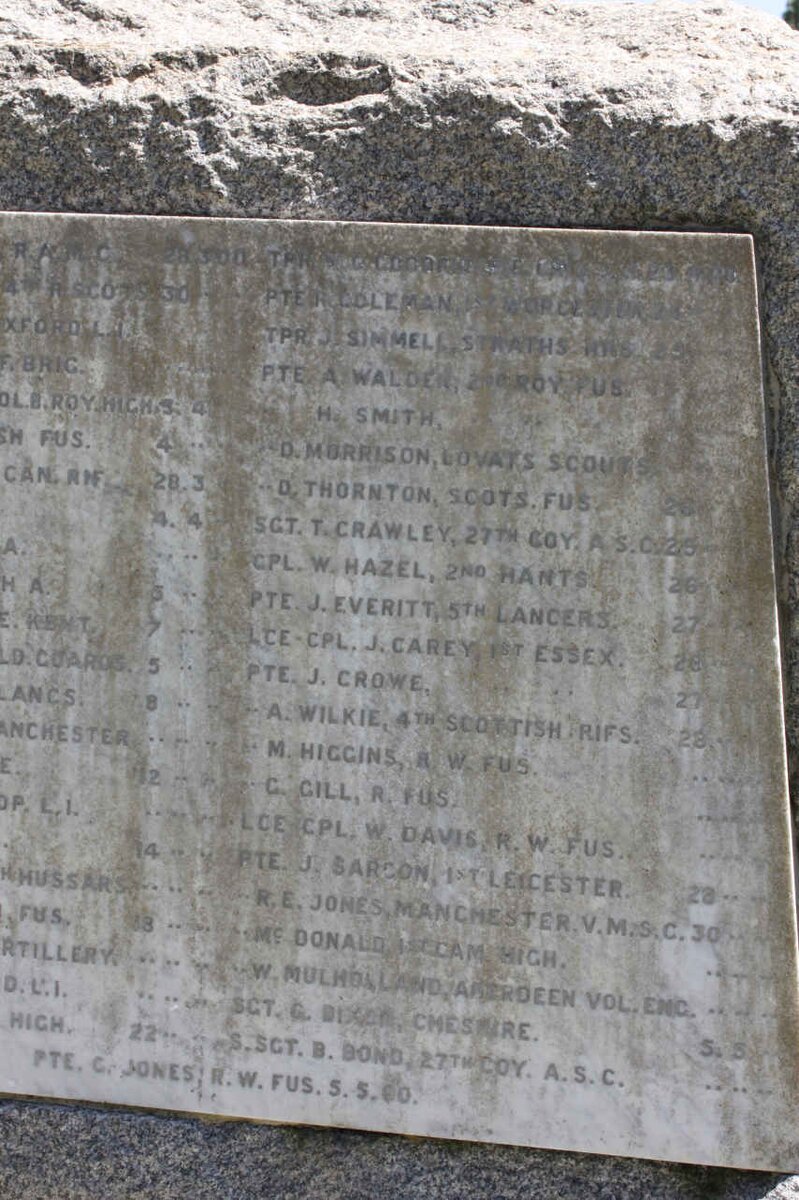 R.A.M.C. 28.3.00
4TH R. SCOTS 30 ..
OXFORD L.I.
F. BRIG.
OL.B. ROY. HIGH. 3. 4
SH FUS. 4 ..
CAN. RIF. 28.3
4. 4
A. .. ..
H A. 5 ..
E. KENT. 7 .. ..
LD. GUARDS. 5 ..
LANCS. 8 .. ..
ANCHESTER .. .. ..
E. 12 .. ..
OP. L.I. .. .. ..
14 .. ..
H HUSSARS. .. .. ..
FUS. 18 .. ..
RTILLERY. .. .. ..
D. L.I. .. .. ..
HIGH. 22 .. ..
TPR.
PTE COLEMAN, 1ST WORCESTER.
TPR. J. SIMMELL, STRATHS HRS. 25
PTE. A. WALDEN, 2ND ROY. FUS.
H. SMITH,
.. D. MORRISON, LOVATS SCOUTS.
.. D. THORNTON, SCOTS. FUS. 26
SGT. T. CRAWLEY, 27TH COY. A.S.C. 25
CPL. W. HAZEL, 2ND HANTS 26
PTE. J. EVERITT, 5TH LANCERS. 27
LCE-CPL. J. CAREY, 1ST ESSEX. 28
PTE. J. CROWE, .. .. 27
.. A. WILKIE, 4TH SCOTTISH RIFS. 28
.. M. HIGGINS, R. W. FUS. .. .. ..
.. G. GILL, R. FUS. .. .. ..
LCE CPL. W. DAVIS, R. W. FUS. .. .. ..
PTE. J. SARGON, 1ST LEICESTER. 28 .. ..
.. R. E. JONES, MANCHESTER. V.M.S.C. 30 .. ..
.. Mc DONALD, 1ST CAM. HIGH. .. .. ..
.. W. MULHOLLAND, ABERDEEN VOL. ENG. .. .. ..
SGT. G. DIXON, CHESHIRE. 5. 5
S.SGT. B. BOND, 27TH COY. A.S.C. .. .. ..
PTE. G. JONES, R. W. FUS. 5. 5. 00.